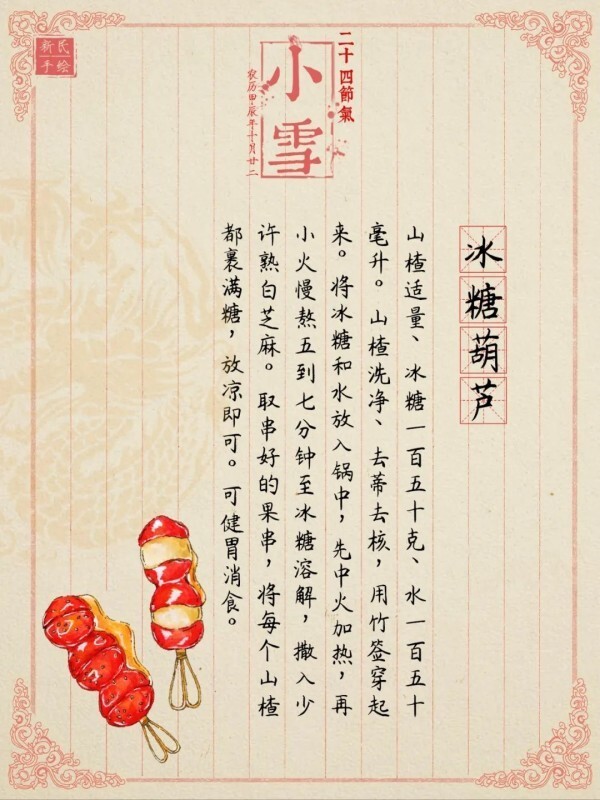 新氏
手绘
二十四節氣
小雪
农历甲辰年十月廿二
冰糖葫芦
山楂适量、冰糖一百五十克、水一百五十
毫升。山楂洗净、去蒂去核，用竹签穿起
来。将冰糖和水放入锅中，先中火加热，再
小火慢熬五到七分钟至冰糖溶解，撒入少
许熟白芝麻。取串好的果串，将每个山楂
都裹满糖，放凉即可。可健胃消食。